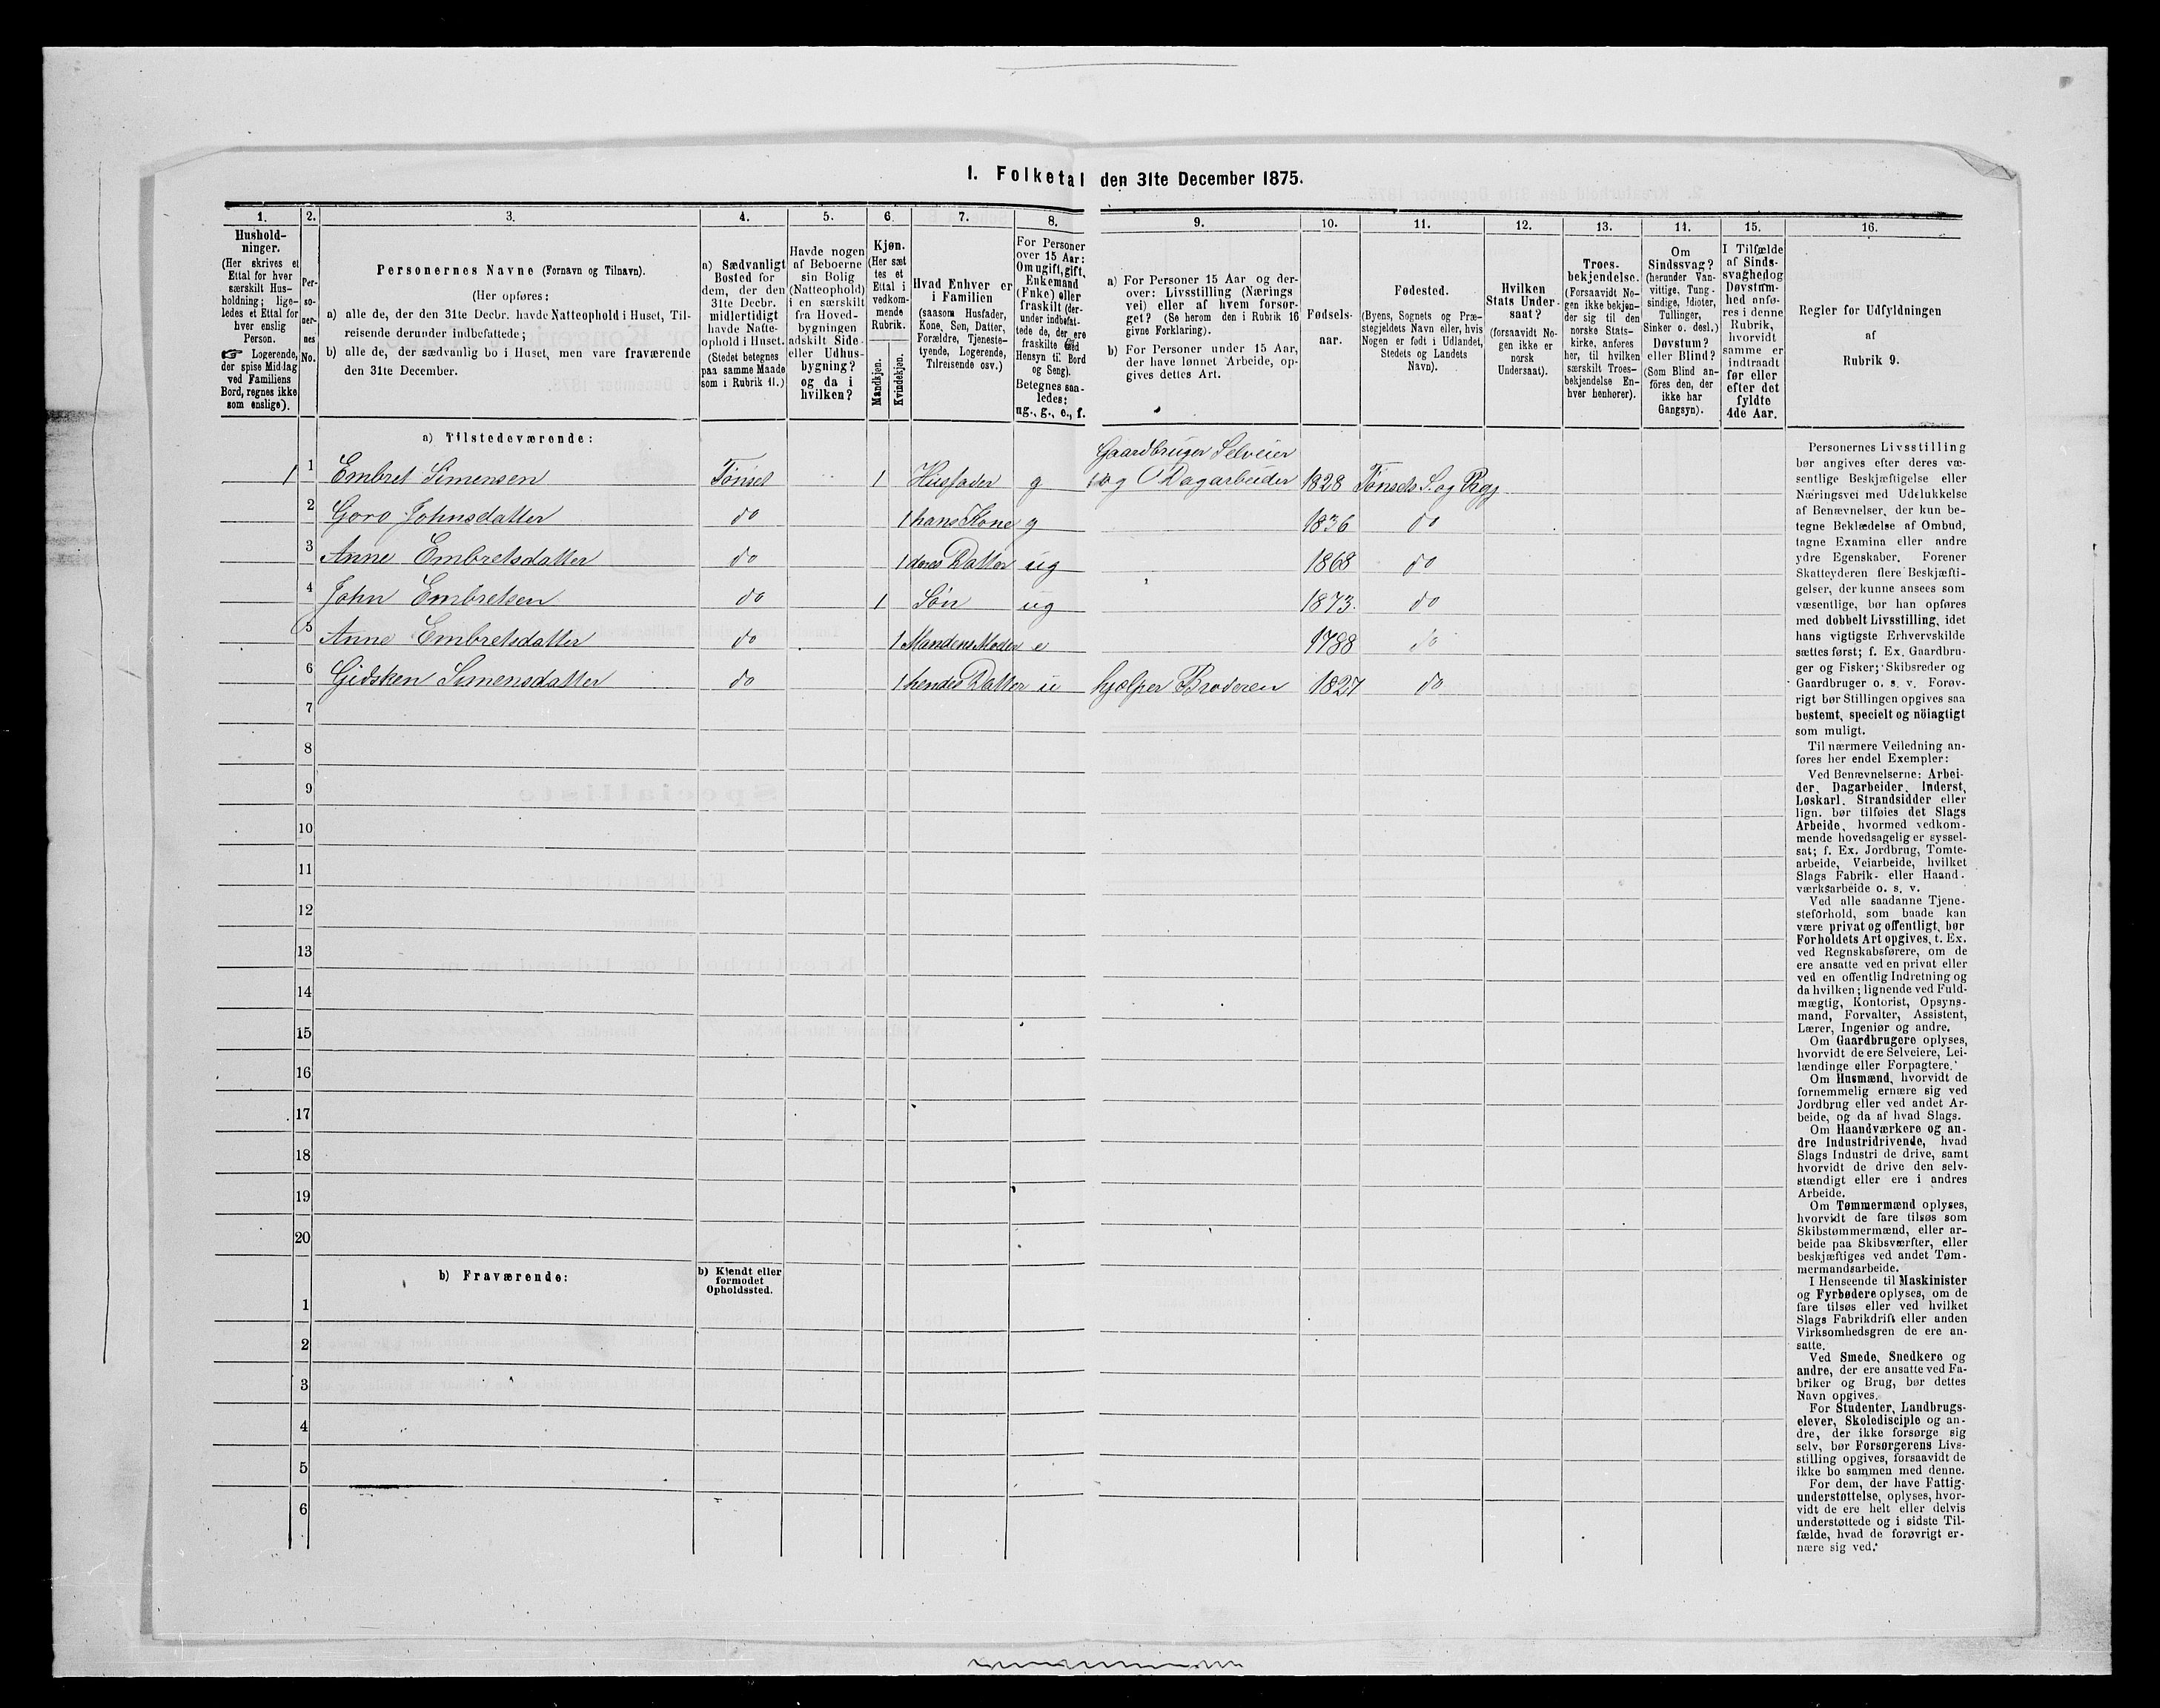 1. Folketal den 31te December 1875.
1.
2.
3.
4.
5.
6.
7.
8.
9.
10.
11.
12.
13.
14.
15.
16.
Hushold-
ninger.
(Her skrives et
Ettal for hver
særskilt Hus-
holdning; lige-
ledes et Ettal for
hver enslig
Person.
☞ Logerende,
der spise Middag
ved Familiens
Bord, regnes ikke
som enslige).
Per-
so-
ner-
nes
No.
Personernes Navne (Fornavn og Tilnavn).
(Her opføres:
a) alle de, der den 31te Decbr. havde Natteophold i Huset, Til-
reisende derunder indbefattede;
b) alle de, der sædvanlig bo i Huset, men vare fraværende
den 31te December.
a) Sædvanligt
Bosted for
dem, der den
31te Decbr.
midlertidigt
havde Natte-
ophold i Huset.
(Stedet betegnes
paa samme Maade
som i Rubrik 11.)
Havde nogen
af Beboerne
sin Bolig
(Natteophold)
i en særskilt
fra Hoved-
bygningen
adskilt Side-
eller Udhus-
bygning?
og da i
hvilken?
Kjøn.
(Her sæt
tes et
Ettal i
vedkom-
mende
Rubrik.
Mandkjøn.
Kvindekjøn.
Hvad Enhver er
i Familien
(saasom Husfader,
Kone, Søn, Datter,
Forældre, Tjeneste-
tyende, Logerende,
Tilreisende osv.)
For Personer
over 15 Aar:
Om ugift, gift,
Enkemand
(Enke) eller
fraskilt (der-
under indbefat-
tede de, der ere
fraskilte med
Hensyn til Bord
og Seng).
Betegnes saa-
ledes:
ug., g., e., f.
a) For Personer 15 Aar og der-
over: Livsstilling (Nærings
vei) eller af hvem forsør-
get? (Se herom den i Rubrik 16
givne Forklaring).
b) For Personer under 15 Aar,
der have lønnet Arbeide, op-
gives dettes Art.
Fødsels-
aar.
Fødested.
(Byens, Sognets og Præ-
stegjeldets Navn eller, hvis
Nogen er født i Udlandet,
Stedets og Landets
Navn).
Hvilken
Stats Under-
saat?
(forsaavidt No-
gen ikke er
norsk
Undersaat).
Troes-
bekjendelse.
(Forsaavidt No-
gen ikke bekjen-
der sig til den
norske Stats-
kirke, anføres
her, til hvilken
særskilt Troes-
bekjendelse En-
hver henhører).
Om
Sindssvag?
(herunder Van-
vittige, Tung-
sindige, Idioter,
Tullinger,
Sinker o. desl.)
Døvstum?
eller Blind?
(Som Blind an-
føres den, der
ikke har
Gangsyn).
I Tilfælde
af Sinds-
svaghed og
Døvstum-
hed anfø-
res i denne
Rubrik,
hvorvidt
samme er
indtraadt
før eller
efter det
fyldte
4de Aar.
Regler for Udfyldningen
af
Rubrik 9.
a) Tilstedeværende:
Gaardbruger Selveier
1 1 Embret Simensen Tönset 1 Husfader g og Dagarbeider 1828 Tönsets S. og Prgj
2 Goro Johnsdatter do 1 hans Kone g 1836 do
3 Anne Embretsdatter do 1 deres Datter ug 1868 do
4 John Embretsen do 1 Sön ug 1873 do
5 Anne Embretsdatter do 1 Mandens Moder e 1788 do
6 Gidsken Simensdatter do 1 hendes Datter u hjælper Broderen 1827 do
7
8
9
10
11
12
13
14
15
16
17
18
19
20
b) Fraværende:
b) Kjendt eller
formodet
Opholdssted.
1
2
3
4
5
6
Personernes Livsstilling
bør angives efter deres væ-
sentlige Beskjæftigelse eller
Næringsvei med Udelukkelse
af Benævnelser, der kun be-
tegne Beklædelse af Ombud,
tagne Examina eller andre
ydre Egenskaber. Forener
Skatteyderen flere Beskjæfti-
gelser, der kunne ansees som
væsentlige, bør han opføres
med dobbelt Livsstilling, idet
hans vigtigste Erhvervskilde
sættes først; f. Ex. Gaardbru-
ger og Fisker; Skibsreder og
Gaardbruger o. s. v. Forøv-
rigt bør Stillingen opgives saa
bestemt, specielt og nöiagtigt
som muligt.
Til nærmere Veiledning an-
føres her endel Exempler:
Ved Benævnelserne: Arbei-
der, Dagarbeider, Inderst,
Løskarl, Strandsidder eller
lign. bør tilføies det Slags
Arbeide, hvormed vedkom-
mende hovedsagelig er syssel-
sat; f. Ex. Jordbrug, Tomte-
arbeide, Veiarbeide, hvilket
Slags Fabrik- eller Haand-
værksarbeide o. s. v.
Ved alle saadanne Tjene-
steforhold, som baade kan
være privat og offentligt, bør
Forholdets Art opgives, t. Ex.
ved Regnskabsførere, om de
ere ansatte ved en privat eller
ved en offentlig Indretning og
da hvilken; lignende ved Fuld-
mægtig, Kontorist, Opsyns-
mand, Forvalter, Assistent,
Lærer, Ingeniør og andre.
Om Gaardbrugere oplyses,
hvorvidt de ere Selveiere, Lei-
lændinge eller Forpagtere.
Om Husmænd, hvorvidt de
fornemmelig ernære sig ved
Jordbrug eller ved andet Ar-
beide, og da af hvad Slags.
Om Haandværkere og an-
dre Industridrivende, hvad
Slags Industri de drive, samt
hvorvidt de drive den selv-
stændigt eller ere i andres
Arbeide.
Om Tømmermænd oplyses,
hvorvidt de fare tilsøs som
Skibstømmermænd, eller ar-
beide paa Skibsværfter, eller
beskjæftiges ved andet Tøm-
mermandsarbeide.
I Henseende til Maskinister
og Fyrbødere oplyses, om de
fare tilsøs eller ved hvilket
Slags Fabrikdrift eller anden
Virksomhedsgren de ere an-
satte.
Ved Smede, Snedkere og
andre, der ere ansatte ved Fa-
briker og Brug, bør dettes
Navn opgives.
For Studenter, Landbrugs-
elever, Skoledisciple og an-
dre, der ikke forsørge sig
selv, bør Forsørgerens Livs-
stilling opgives, forsaavidt de
ikke bo sammen med denne.
For dem, der have Fattig-
understøttelse, oplyses, hvor-
vidt de ere helt eller delvis
understøttede og i sidste Til-
fælde, hvad de forøvrigt er-
nære sig ved.